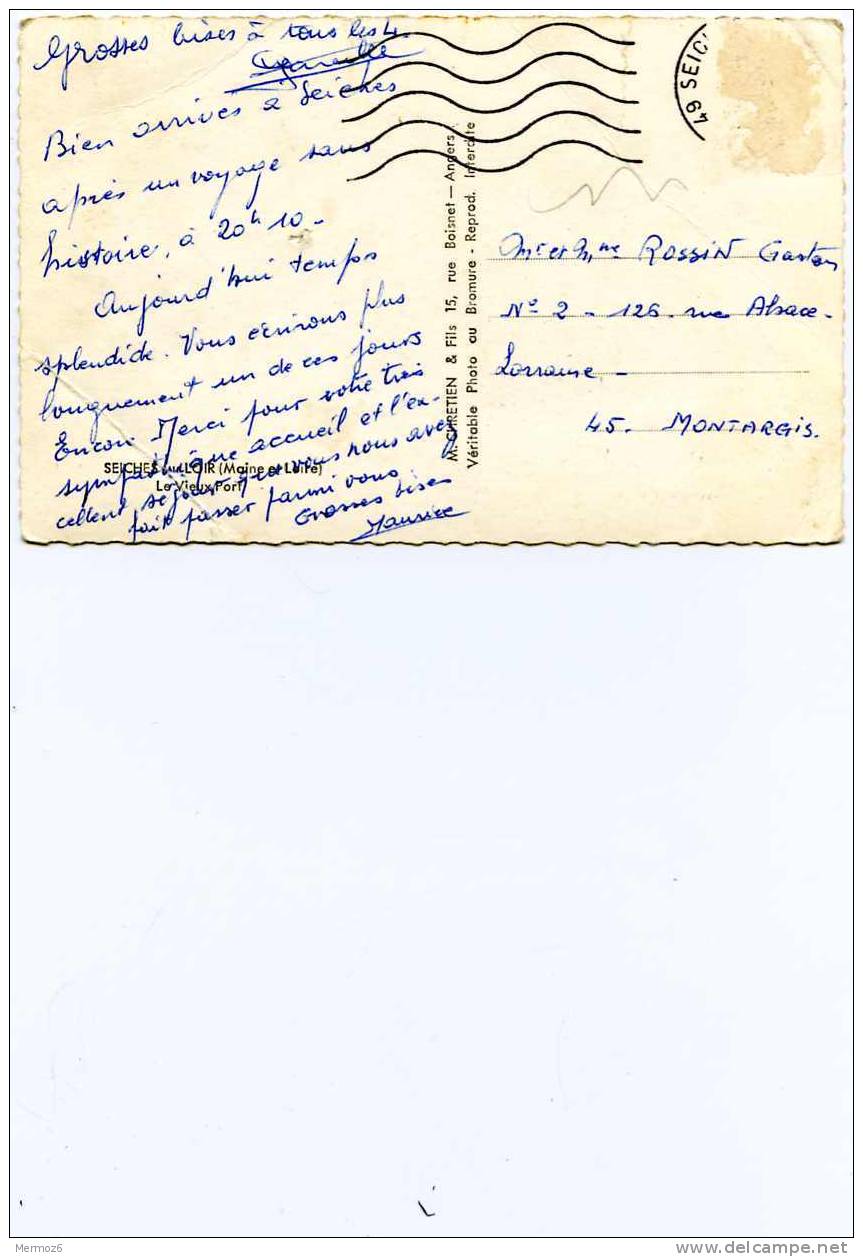 Grosses bises à tous les 4.
Bien arrivés à Seiches
après un voyage sans
histoire, à 20h 10 -
Aujourd'hui temps
splendide. Vous écrirons plus
longuement un de ces jours
Encore Merci pour votre très
sympathique accueil et l'ex-
cellent séjour que vous nous avez
fait passer parmi vous.
Grosses bises
Maurice
SEICHES sur LOIR (Maine et Loire)
Le Vieux Port
M. CHRETIEN & Fils 15, rue Boisnet — Angers
Véritable Photo au Bromure - Reprod. Interdite
49 SEIC
Mr et Mme ROSSIN Gaston
N° 2 - 126. rue Alsace-
Lorraine -
45. MONTARGIS.
Mermoz6
www.delcampe.net